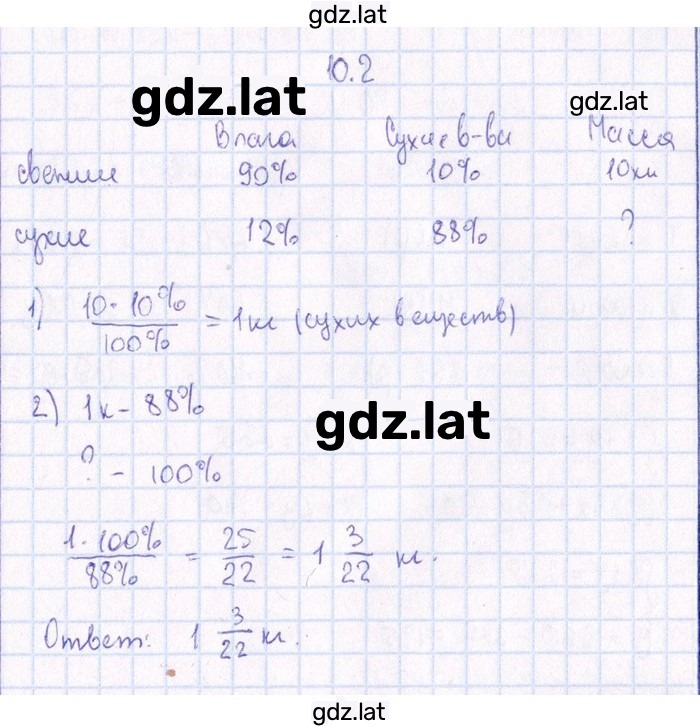 gdz.lat
10.2
gdz.lat
gdz.lat
Влага Сухие в-ва Масса
свежие 90% 10% 10кг
сухие 12% 88% ?
1) 10 · 10% / 100% = 1кг (сухих веществ)
2) 1к - 88%
? - 100%
gdz.lat
1 · 100% / 88% = 25/22 = 1 3/22 кг.
Ответ: 1 3/22 кг.
gdz.lat